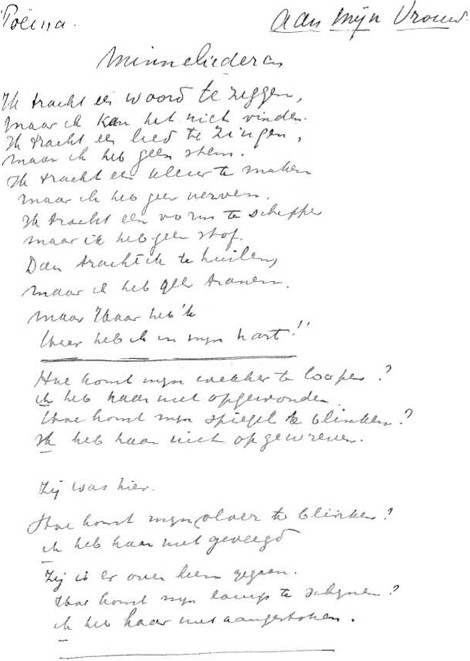 Poëma. Aan Mijn Vrouw.
Minneliederen
Ik tracht een woord te zeggen,
maar ik kan het niet vinden.
Ik tracht een lied te zingen,
maar ik heb geen stem.
Ik tracht een kleur te maken
maar ik heb geen verven.
Ik tracht een vorm te scheppen
maar ik heb geen stof.
Dan tracht ik te huilen,
maar ik heb geen tranen.
maar Haar heb 'k
weer heb ik in mijn hart!!
Hoe komt mijn wekker te loopen?
ik heb haar niet opgewonden
Hoe komt mijn spiegel te blinken?
Ik heb haar niet opgewreven.
Zij was hier.
Hoe komt mijn vloer te blinken?
ik heb haar niet geveegd
Zij is er over heen gegaan.
Hoe komt mijn lamp te schijnen?
ik heb haar niet aangestoken.